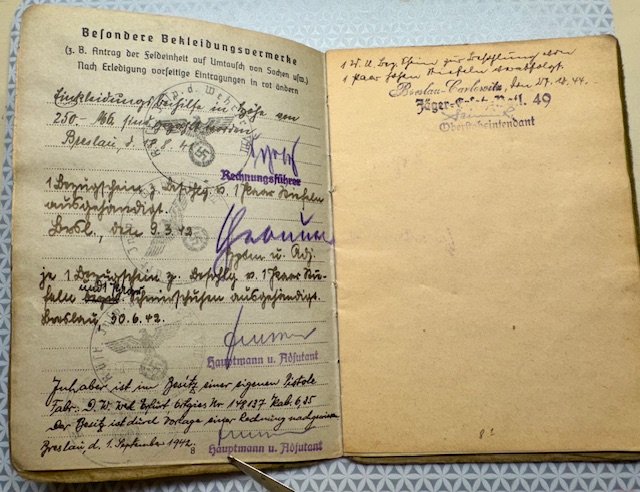 Besondere Bekleidungsvermerke
(z. B. Antrag der Feldeinheit auf Umtausch von Sachen usw.)
Nach Erledigung vorseitige Eintragungen in rot ändern
Einkleidungsbeihilfe in Höhe von
250.- RM. sind gezahlt worden
Breslau, d.
Rechnungsführer
1 Bezugschein z. Besohlg v. 1 Paar Stiefeln
ausgehändigt.
Bresl., den 9.3.42
Hptm u. Adj.
je 1 Bezugschein z. Besohlg v. 1 Paar Stie-
feln und 1 Paar Schnürschuhen ausgehändigt.
Breslau, 30.6.42.
Hauptmann u. Adjutant
Inhaber ist im Besitz einer eigenen Pistole
Fabr. D. W. Werk Erfurt Ortgies Nr 149137 Kal. 6,35
Der Besitz ist durch Vorlage einer Rechnung nachgewiesen
Breslau, d. 1. September 1942.
8
Hauptmann u. Adjutant
Bez. Schein zur Besohlung von
1 Paar hohen Stiefeln verabfolgt.
Breslau-Carlowitz, den 44.
Jäger-Ersatz-Batl. 49
Oberstabsintendant